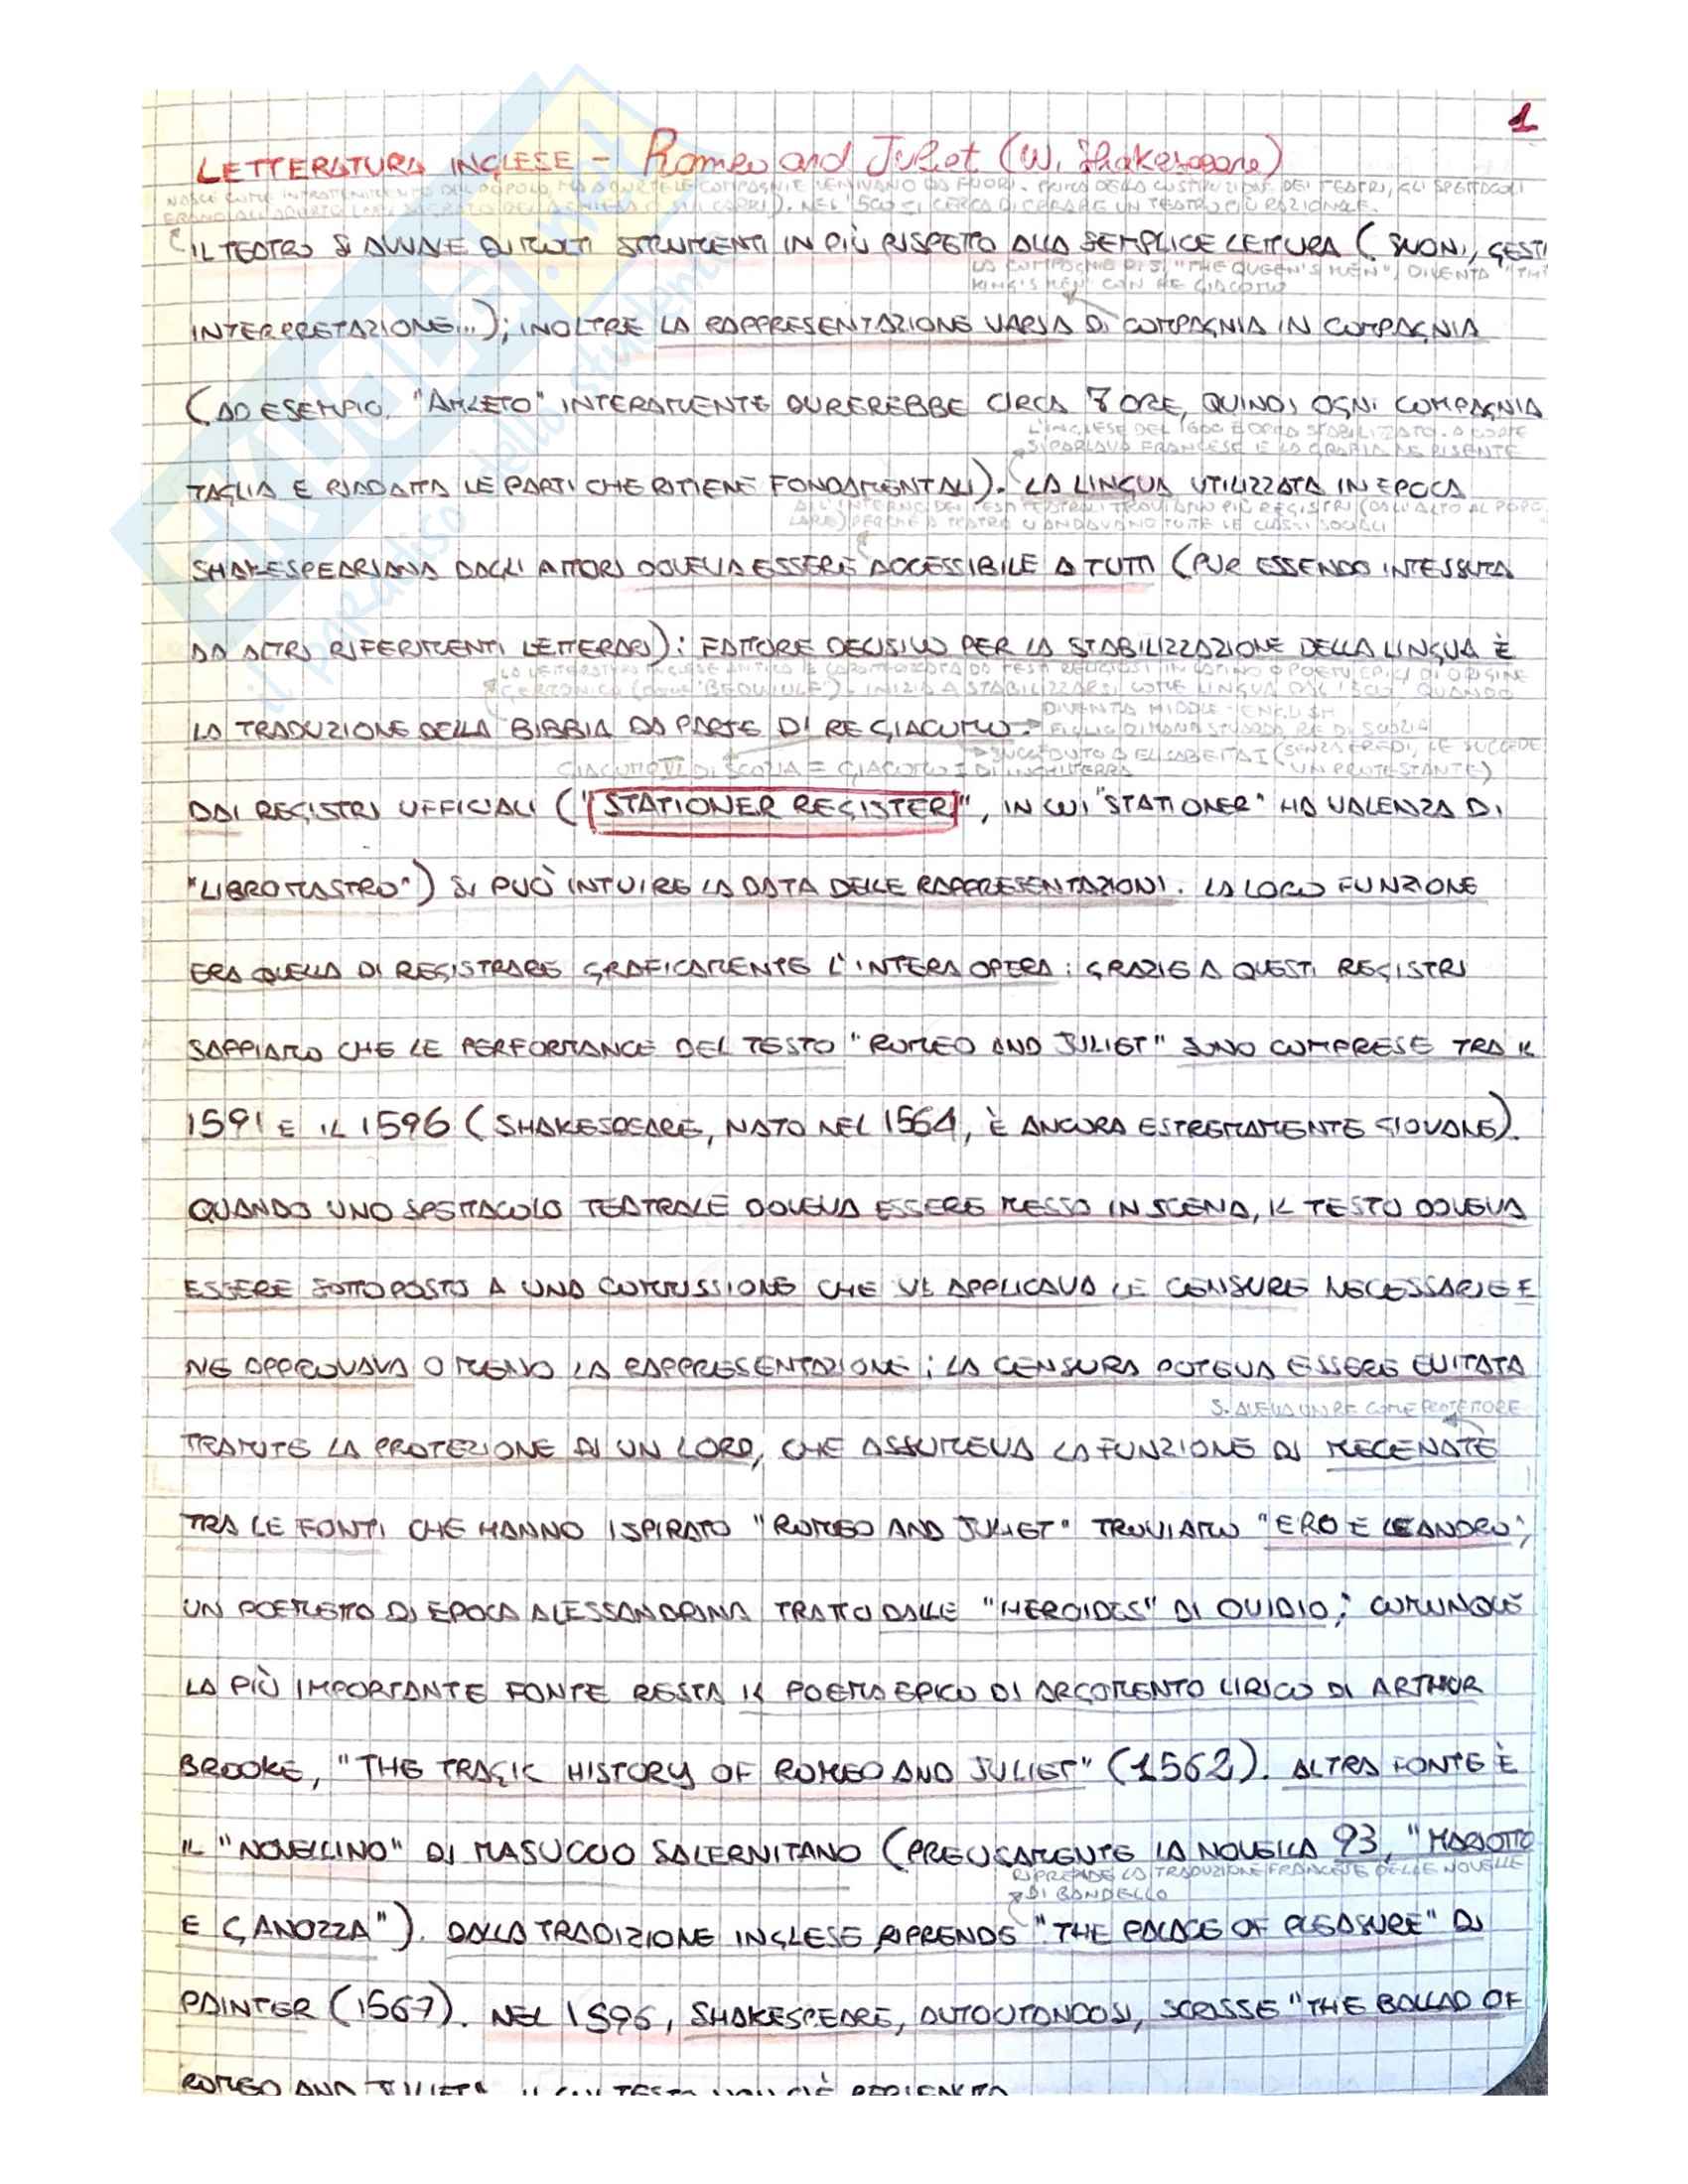 1
LETTERATURA INGLESE - Romeo and Juliet (W. Shakespeare)
NASCE COME INTRATTENIMENTO DEL POPOLO, MA A CORTE LE COMPAGNIE VENIVANO DA FUORI. PRIMA DELLA COSTRUZIONE DEI TEATRI, GLI SPETTACOLI
ERANO ALL'APERTO (SUL SAGRATO DELLA CHIESA O SUI CARRI). NEL '500 SI CERCA DI CREARE UN TEATRO PIÙ RAZIONALE.
IL TEATRO SI AVVALE DI MOLTI STRUMENTI IN PIÙ RISPETTO ALLA SEMPLICE LETTURA (SUONI, GESTI
LA COMPAGNIA DI S. "THE QUEEN'S MEN", DIVENTA "THE
KING'S MEN" CON RE GIACOMO
INTERPRETAZIONE...); INOLTRE LA RAPPRESENTAZIONE VARIA DI COMPAGNIA IN COMPAGNIA
(AD ESEMPIO, "AMLETO" INTERAMENTE DUREREBBE CIRCA 7 ORE, QUINDI OGNI COMPAGNIA
L'INGLESE DEL '600 È ORMAI STABILIZZATO. A CORTE
SI PARLAVA FRANCESE E LA GRAFIA NE RISENTE
TAGLIA E RIADATTA LE PARTI CHE RITIENE FONDAMENTALI). LA LINGUA UTILIZZATA IN EPOCA
ALL'INTERNO DEI TESTI TEATRALI TROVIAMO PIÙ REGISTRI (DALL'ALTO AL POPO
LARE) PERCHÉ A TEATRO CI ANDAVANO TUTTE LE CLASSI SOCIALI
SHAKESPEARIANA DAGLI ATTORI DOVEVA ESSERE ACCESSIBILE A TUTTI (PUR ESSENDO INTESSUTA
DA ALTRI RIFERIMENTI LETTERARI): FATTORE DECISIVO PER LA STABILIZZAZIONE DELLA LINGUA È
LA LETTERATURA INGLESE ANTICA È CARATTERIZZATA DA TESTI RELIGIOSI IN LATINO O POEMI EPICI DI ORIGINE
GERMONICA (COME "BEOWULF"). INIZIA A STABILIZZARSI COME LINGUA DAL '500, QUANDO
DIVENTA MIDDLE-ENGLISH
LA TRADUZIONE DELLA BIBBIA DA PARTE DI RE GIACOMO. → FIGLIO DI MARIA STUARDA RE DI SCOZIA
→ SUCCEDUTO A ELISABETTA I (SENZA EREDI, LE SUCCEDE
UN PROTESTANTE)
GIACOMO VI DI SCOZIA = GIACOMO I DI INGHILTERRA
DAI REGISTRI UFFICIALI ("STATIONER REGISTER", IN CUI "STATIONER" HA VALENZA DI
"LIBRO MASTRO") SI PUÒ INTUIRE LA DATA DELLE RAPPRESENTAZIONI. LA LORO FUNZIONE
ERA QUELLA DI REGISTRARE GRAFICAMENTE L'INTERA OPERA: GRAZIE A QUESTI REGISTRI
SAPPIAMO CHE LE PERFORMANCE DEL TESTO "ROMEO AND JULIET" SONO COMPRESE TRA IL
1591 E IL 1596 (SHAKESPEARE, NATO NEL 1564, È ANCORA ESTREMAMENTE GIOVANE).
QUANDO UNO SPETTACOLO TEATRALE DOVEVA ESSERE MESSO IN SCENA, IL TESTO DOVEVA
ESSERE SOTTOPOSTO A UNA COMMISSIONE CHE VI APPLICAVA LE CENSURE NECESSARIE E
NE APPROVAVA O MENO LA RAPPRESENTAZIONE; LA CENSURA POTEVA ESSERE EVITATA
S. AVEVA UN RE COME PROTETTORE
TRAMITE LA PROTEZIONE DI UN LORD, CHE ASSUMEVA LA FUNZIONE DI MECENATE
TRA LE FONTI CHE HANNO ISPIRATO "ROMEO AND JULIET" TROVIAMO "ERO E LEANDRO",
UN POEMETTO DI EPOCA ALESSANDRINA TRATTO DALLE "HEROIDES" DI OVIDIO; COMUNQUE
LA PIÙ IMPORTANTE FONTE RESTA IL POEMA EPICO DI ARGOMENTO LIRICO DI ARTHUR
BROOKE, "THE TRAGIC HISTORY OF ROMEO AND JULIET" (1562). ALTRA FONTE È
IL "NOVELLINO" DI MASUCCIO SALERNITANO (PRECISAMENTE LA NOVELLA 93, "MARIOTTO
RIPRENDE LA TRADUZIONE FRANCESE DELLE NOVELLE
DI BANDELLO
E GANOZZA"). DALLA TRADIZIONE INGLESE RIPRENDE "THE PALACE OF PLEASURE" DI
PAINTER (1567). NEL 1596, SHAKESPEARE, AUTOCITANDOSI, SCRISSE "THE BALLAD OF
ROMEO AND JULIET", IL CUI TESTO NON CI È PERVENUTO
SKUOLA.net
il paradiso dello studente